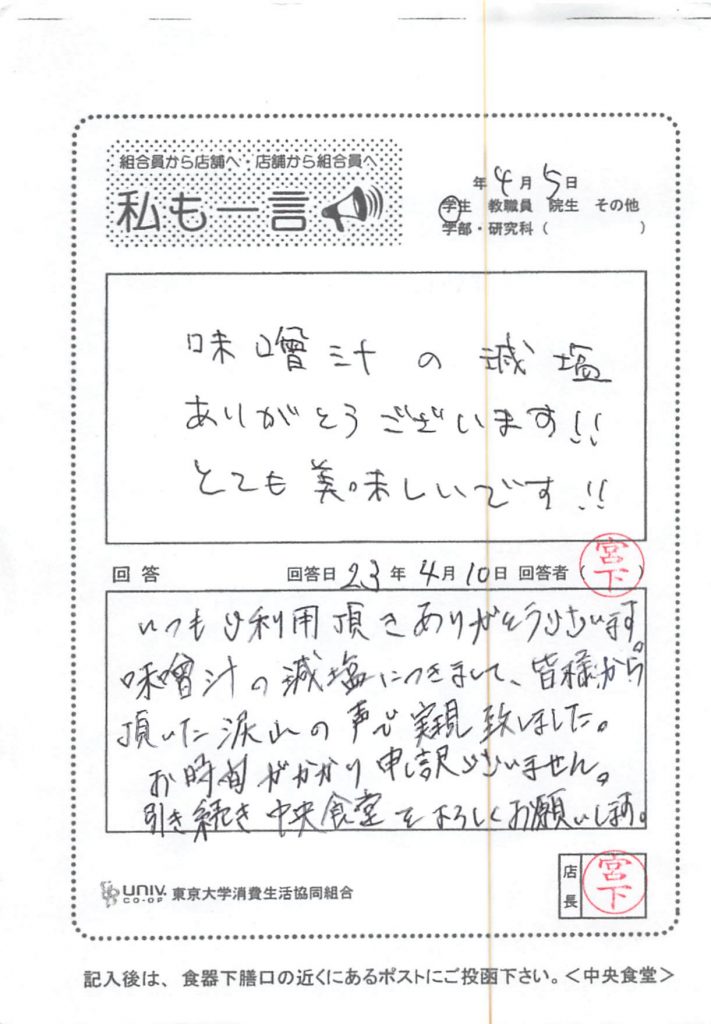 組合員から店舗へ・店舗から組合員へ
私も一言
年4月5日
学生 教職員 院生 その他
学部・研究科( )
味噌汁の減塩
ありがとうございます!!
とても美味しいです!!
回答 回答日 23年4月10日 回答者(宮下)
いつもご利用頂きありがとうございます。
味噌汁の減塩につきまして、皆様から
頂いた沢山の声で実現致しました。
お時間がかかり申し訳ございません。
引き続き中央食堂をよろしくお願いします。
UNIV. CO-OP 東京大学消費生活協同組合
店長 宮下
記入後は、食器下膳口の近くにあるポストにご投函下さい。<中央食堂>